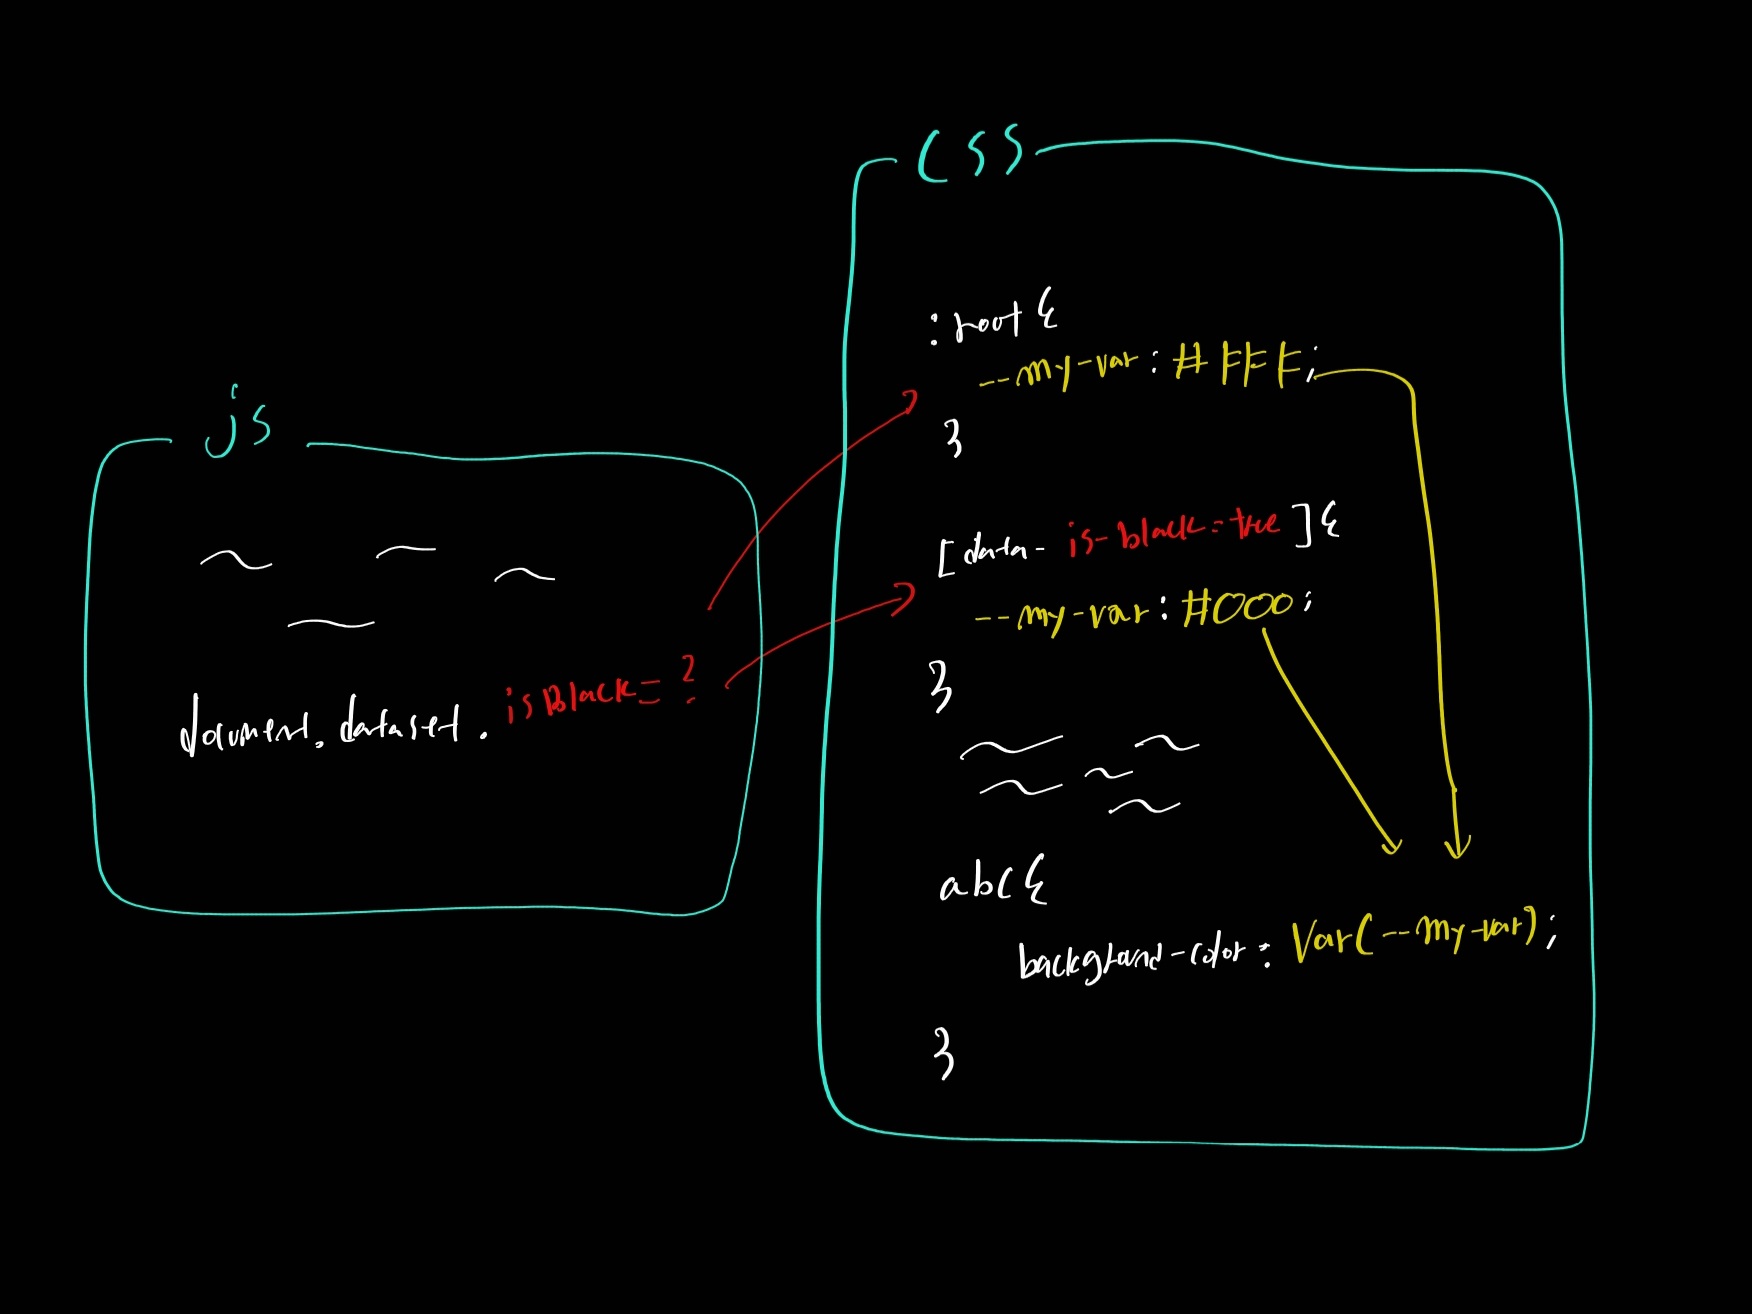 js
document.dataset.isBlack=?
css
:root{
--my-var:#FFF;
}
[data-is-black=true]{
--my-var:#000;
}
abc{
background-color:Var(--my-var);
}